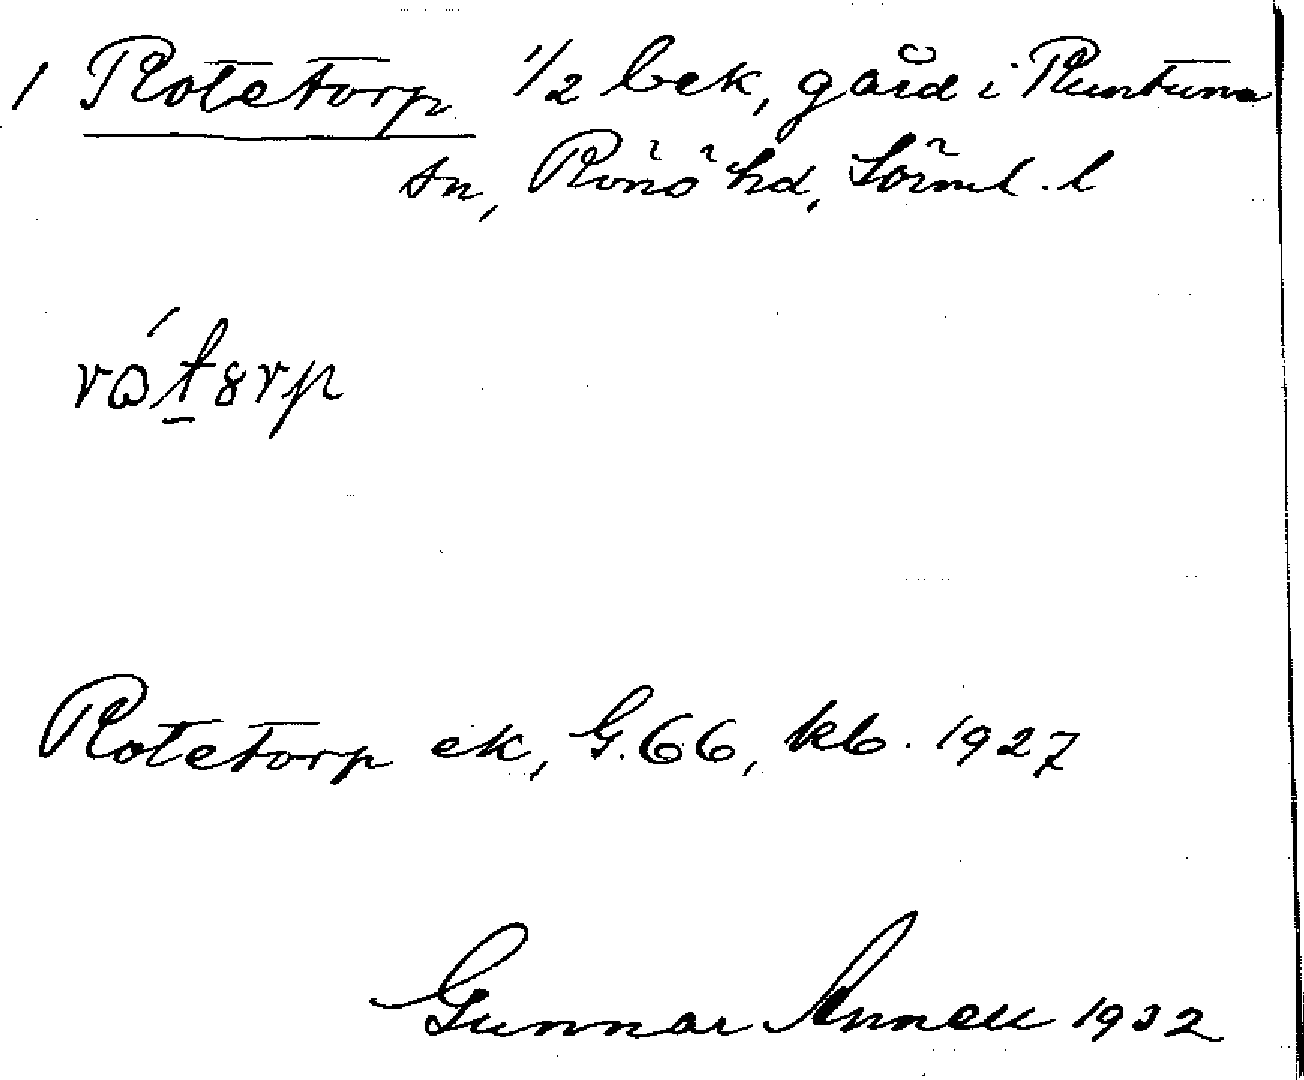 1 Rotetorp 1/2 bek, gård i Runtuna
sn, Rönö hd, Sörml. l
Rotetorp ek, G. 66, kb. 1927
Gunnar Annell 1932